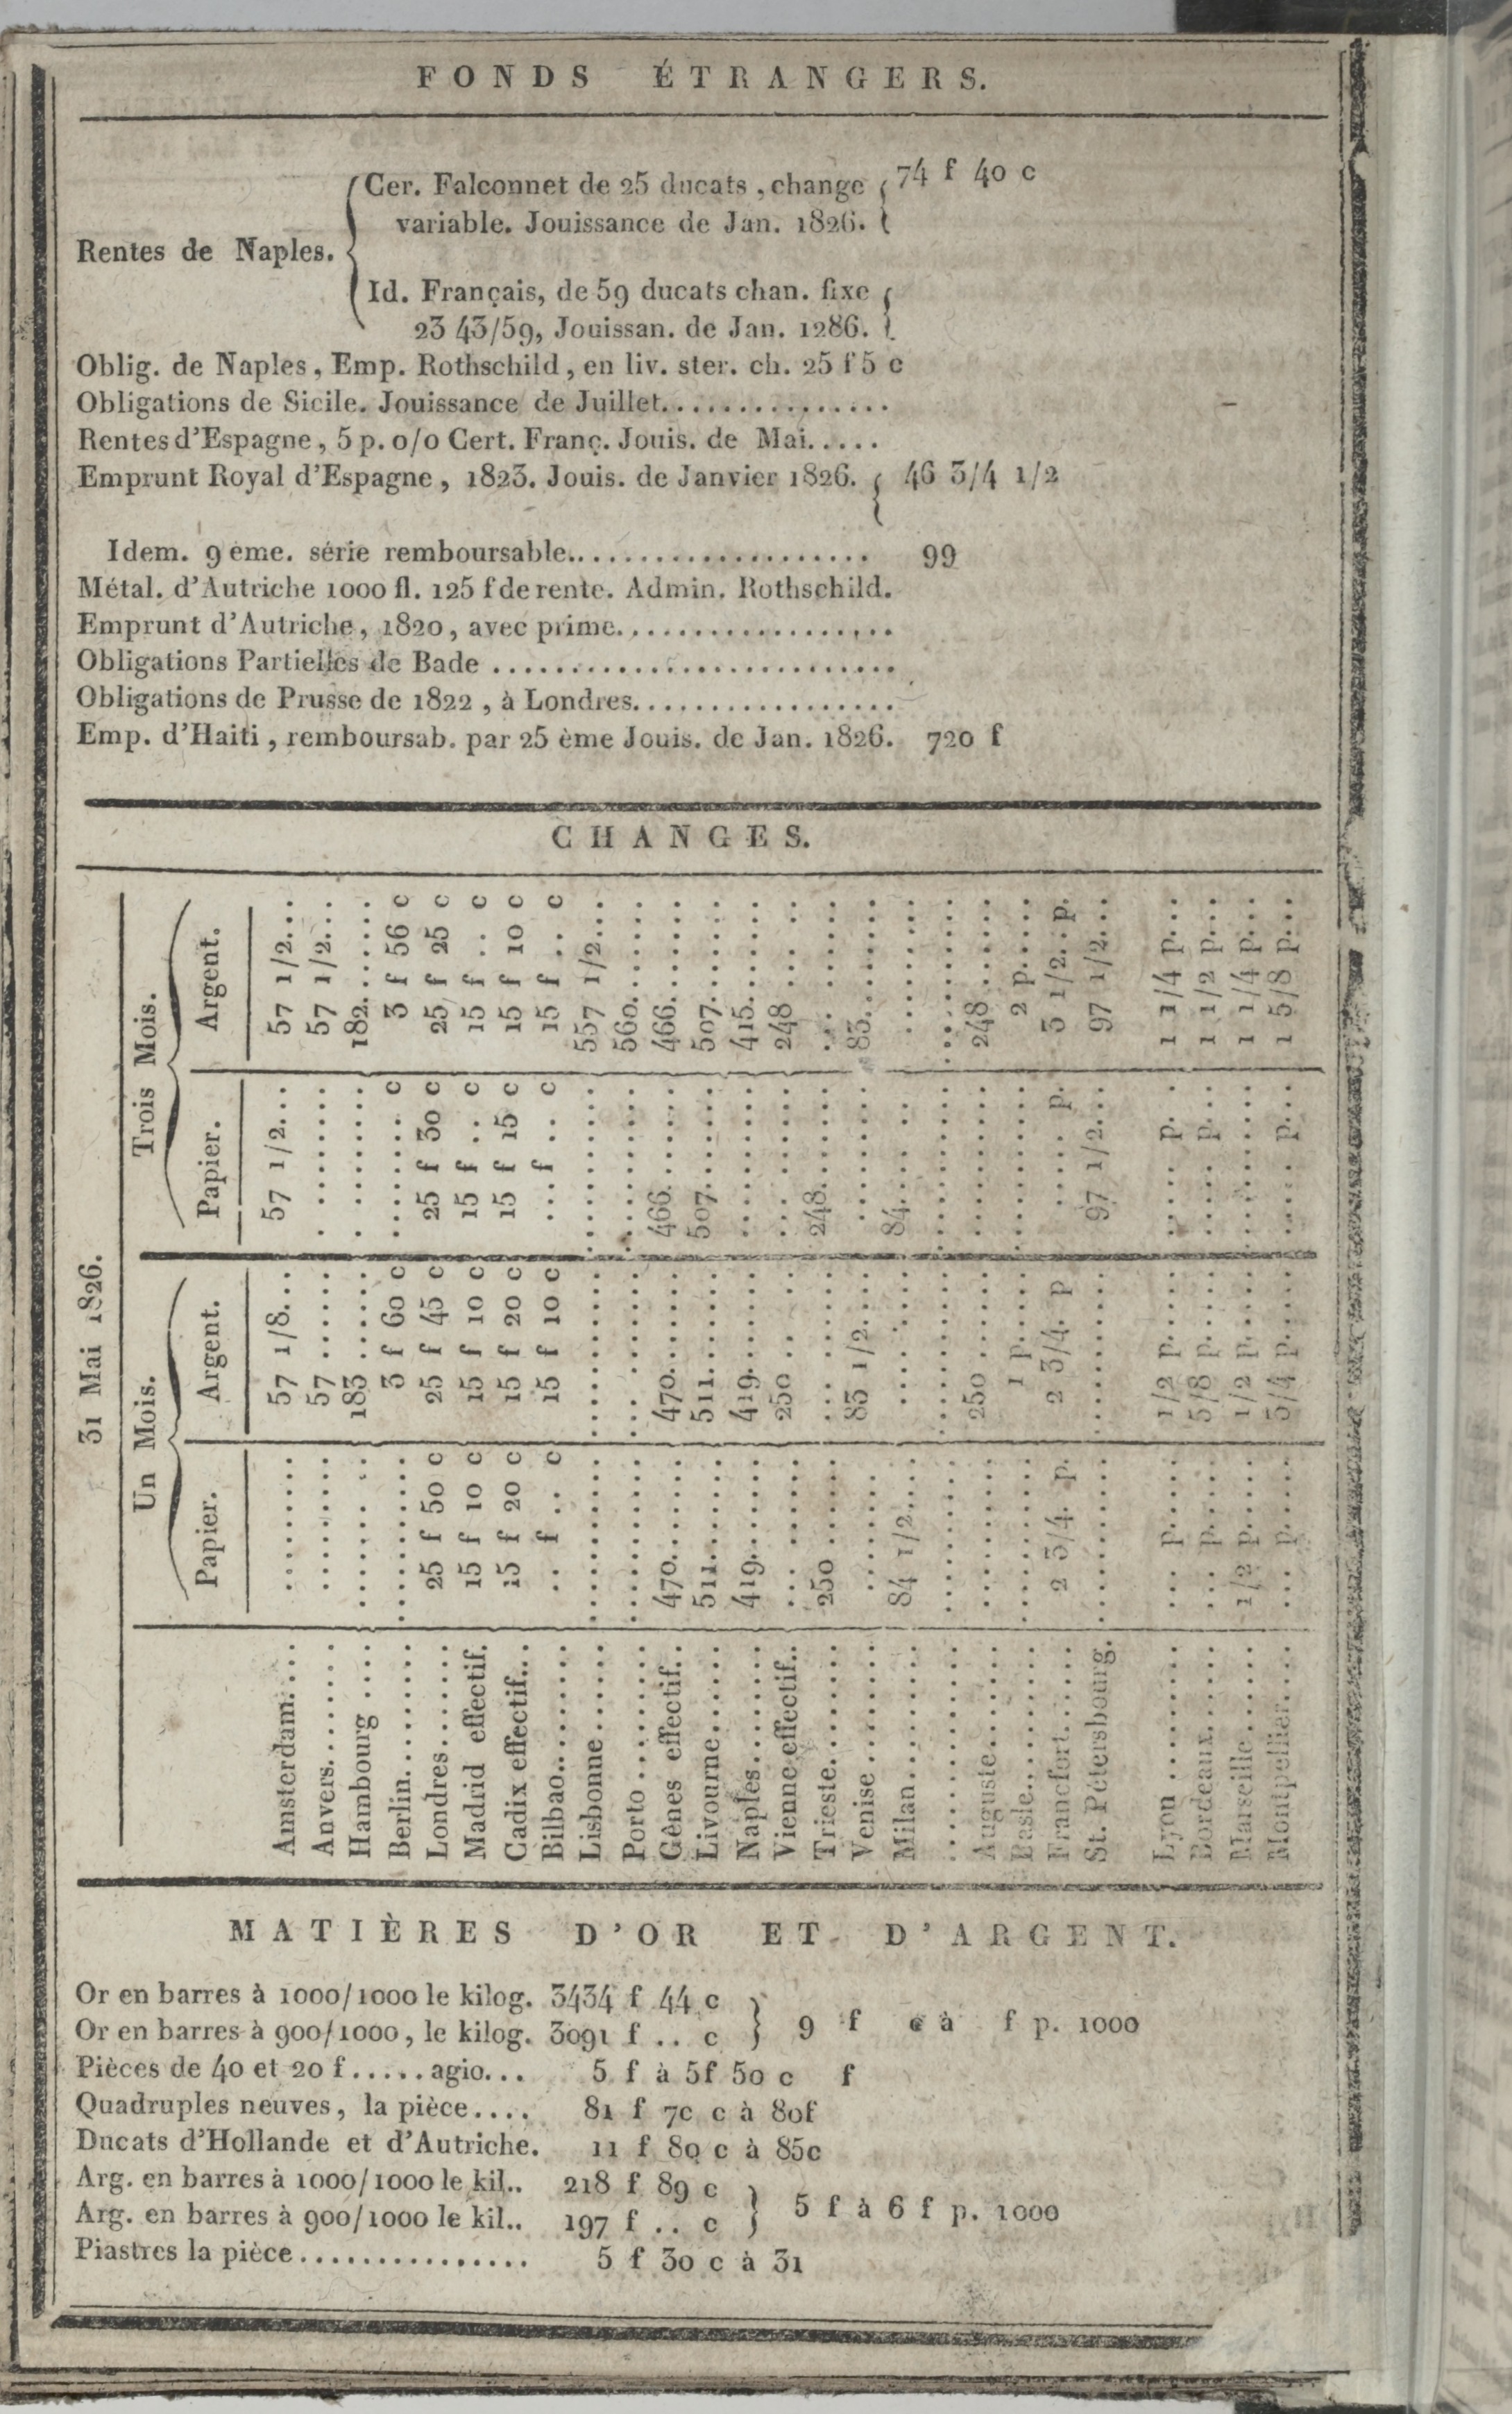 FONDS ÉTRANGERS.
Rentes de Naples.
Cer. Falconnet de 25 ducats, change 74 f 40 c
variable. Jouissance de Jan. 1826.
Id. Français, de 59 ducats chan. fixe
23 43/59, Jouissan. de Jan. 1286.
Oblig. de Naples, Emp. Rothschild, en liv. ster. ch. 25 f 5 c
Obligations de Sicile. Jouissance de Juillet...............
Rentes d'Espagne, 5 p. o/o Cert. Franç. Jouis. de Mai.....
Emprunt Royal d'Espagne, 1823. Jouis. de Janvier 1826. 46 3/4 1/2
Idem. 9 eme. série remboursable.................... 99
Métal. d'Autriche 1000 fl. 125 f de rente. Admin. Rothschild.
Emprunt d'Autriche, 1820, avec prime..................
Obligations Partielles de Bade ..........................
Obligations de Prusse de 1822, à Londres.................
Emp. d'Haiti, remboursab. par 25 ème Jouis. de Jan. 1826. 720 f
CHANGES.
31 Mai 1826.
Un Mois. Trois Mois.
Papier. Argent. Papier. Argent.
Amsterdam.... ......... 57 1/8... 57 1/2... 57 1/2...
Anvers....... ......... 57 ...... ........ 57 1/2...
Hambourg .... ........ 183...... ........ 182......
Berlin........ ......... 3 f 60 c ...... c 3 f 56 c
Londres....... 25 f 50 c 25 f 45 c 25 f 30 c 25 f 25 c
Madrid effectif. 15 f 10 c 15 f 10 c 15 f .. c 15 f .. c
Cadix effectif... 15 f 20 c 15 f 20 c 15 f 15 c 15 f 10 c
Bilbao........ .. f .. c 15 f 10 c ... f .. c 15 f .. c
Lisbonne...... ......... ......... ......... 557 1/2...
Porto ........ ......... ......... ......... 560......
Gênes effectif.. 470....... 470....... 466...... 466......
Livourne...... 511....... 511....... 507...... 507......
Naples........ 419....... 419....... ........ 415......
Vienne effectif.. ......... 250 .. . ........ 248 .. .
Trieste........ 250 ...... ......... 248...... ........
Venise ........ ........ 83 1/2.... ........ 83.......
Milan......... 84 1/2.... ........ 84.... . ........
......... ......... ......... ......... .........
Auguste....... ........ 250 ...... ........ 248 ......
Basle......... ......... 1 p..... ......... 2 p.....
Francfort...... 2 3/4. p. 2 3/4. p .... p. 3 1/2.. p.
St. Pétersbourg. ......... ......... 97 1/2... 97 1/2...
Lyon ........ ... p..... 1/2 p..... .... p. . 1 1/4 p...
Bordeaux...... ... p..... 5/8 p..... .... p... 1 1/2 p...
Marseille...... 1/2 p..... 1/2 p..... ........ 1 1/4 p...
Montpellier.... ... p..... 3/4 p..... .... p... 1 5/8 p...
MATIÈRES D'OR ET D'ARGENT.
Or en barres à 1000/1000 le kilog. 3434 f 44 c
Or en barres à 900/1000, le kilog. 3091 f .. c 9 f c à f p. 1000
Pièces de 40 et 20 f..... agio... 5 f à 5f 50 c f
Quadruples neuves, la pièce.... 81 f 7c c à 80f
Ducats d'Hollande et d'Autriche. 11 f 80 c à 85c
Arg. en barres à 1000/1000 le kil.. 218 f 89 c
Arg. en barres à 900/1000 le kil.. 197 f .. c 5 f à 6 f p. 1000
Piastres la pièce............... 5 f 30 c à 31